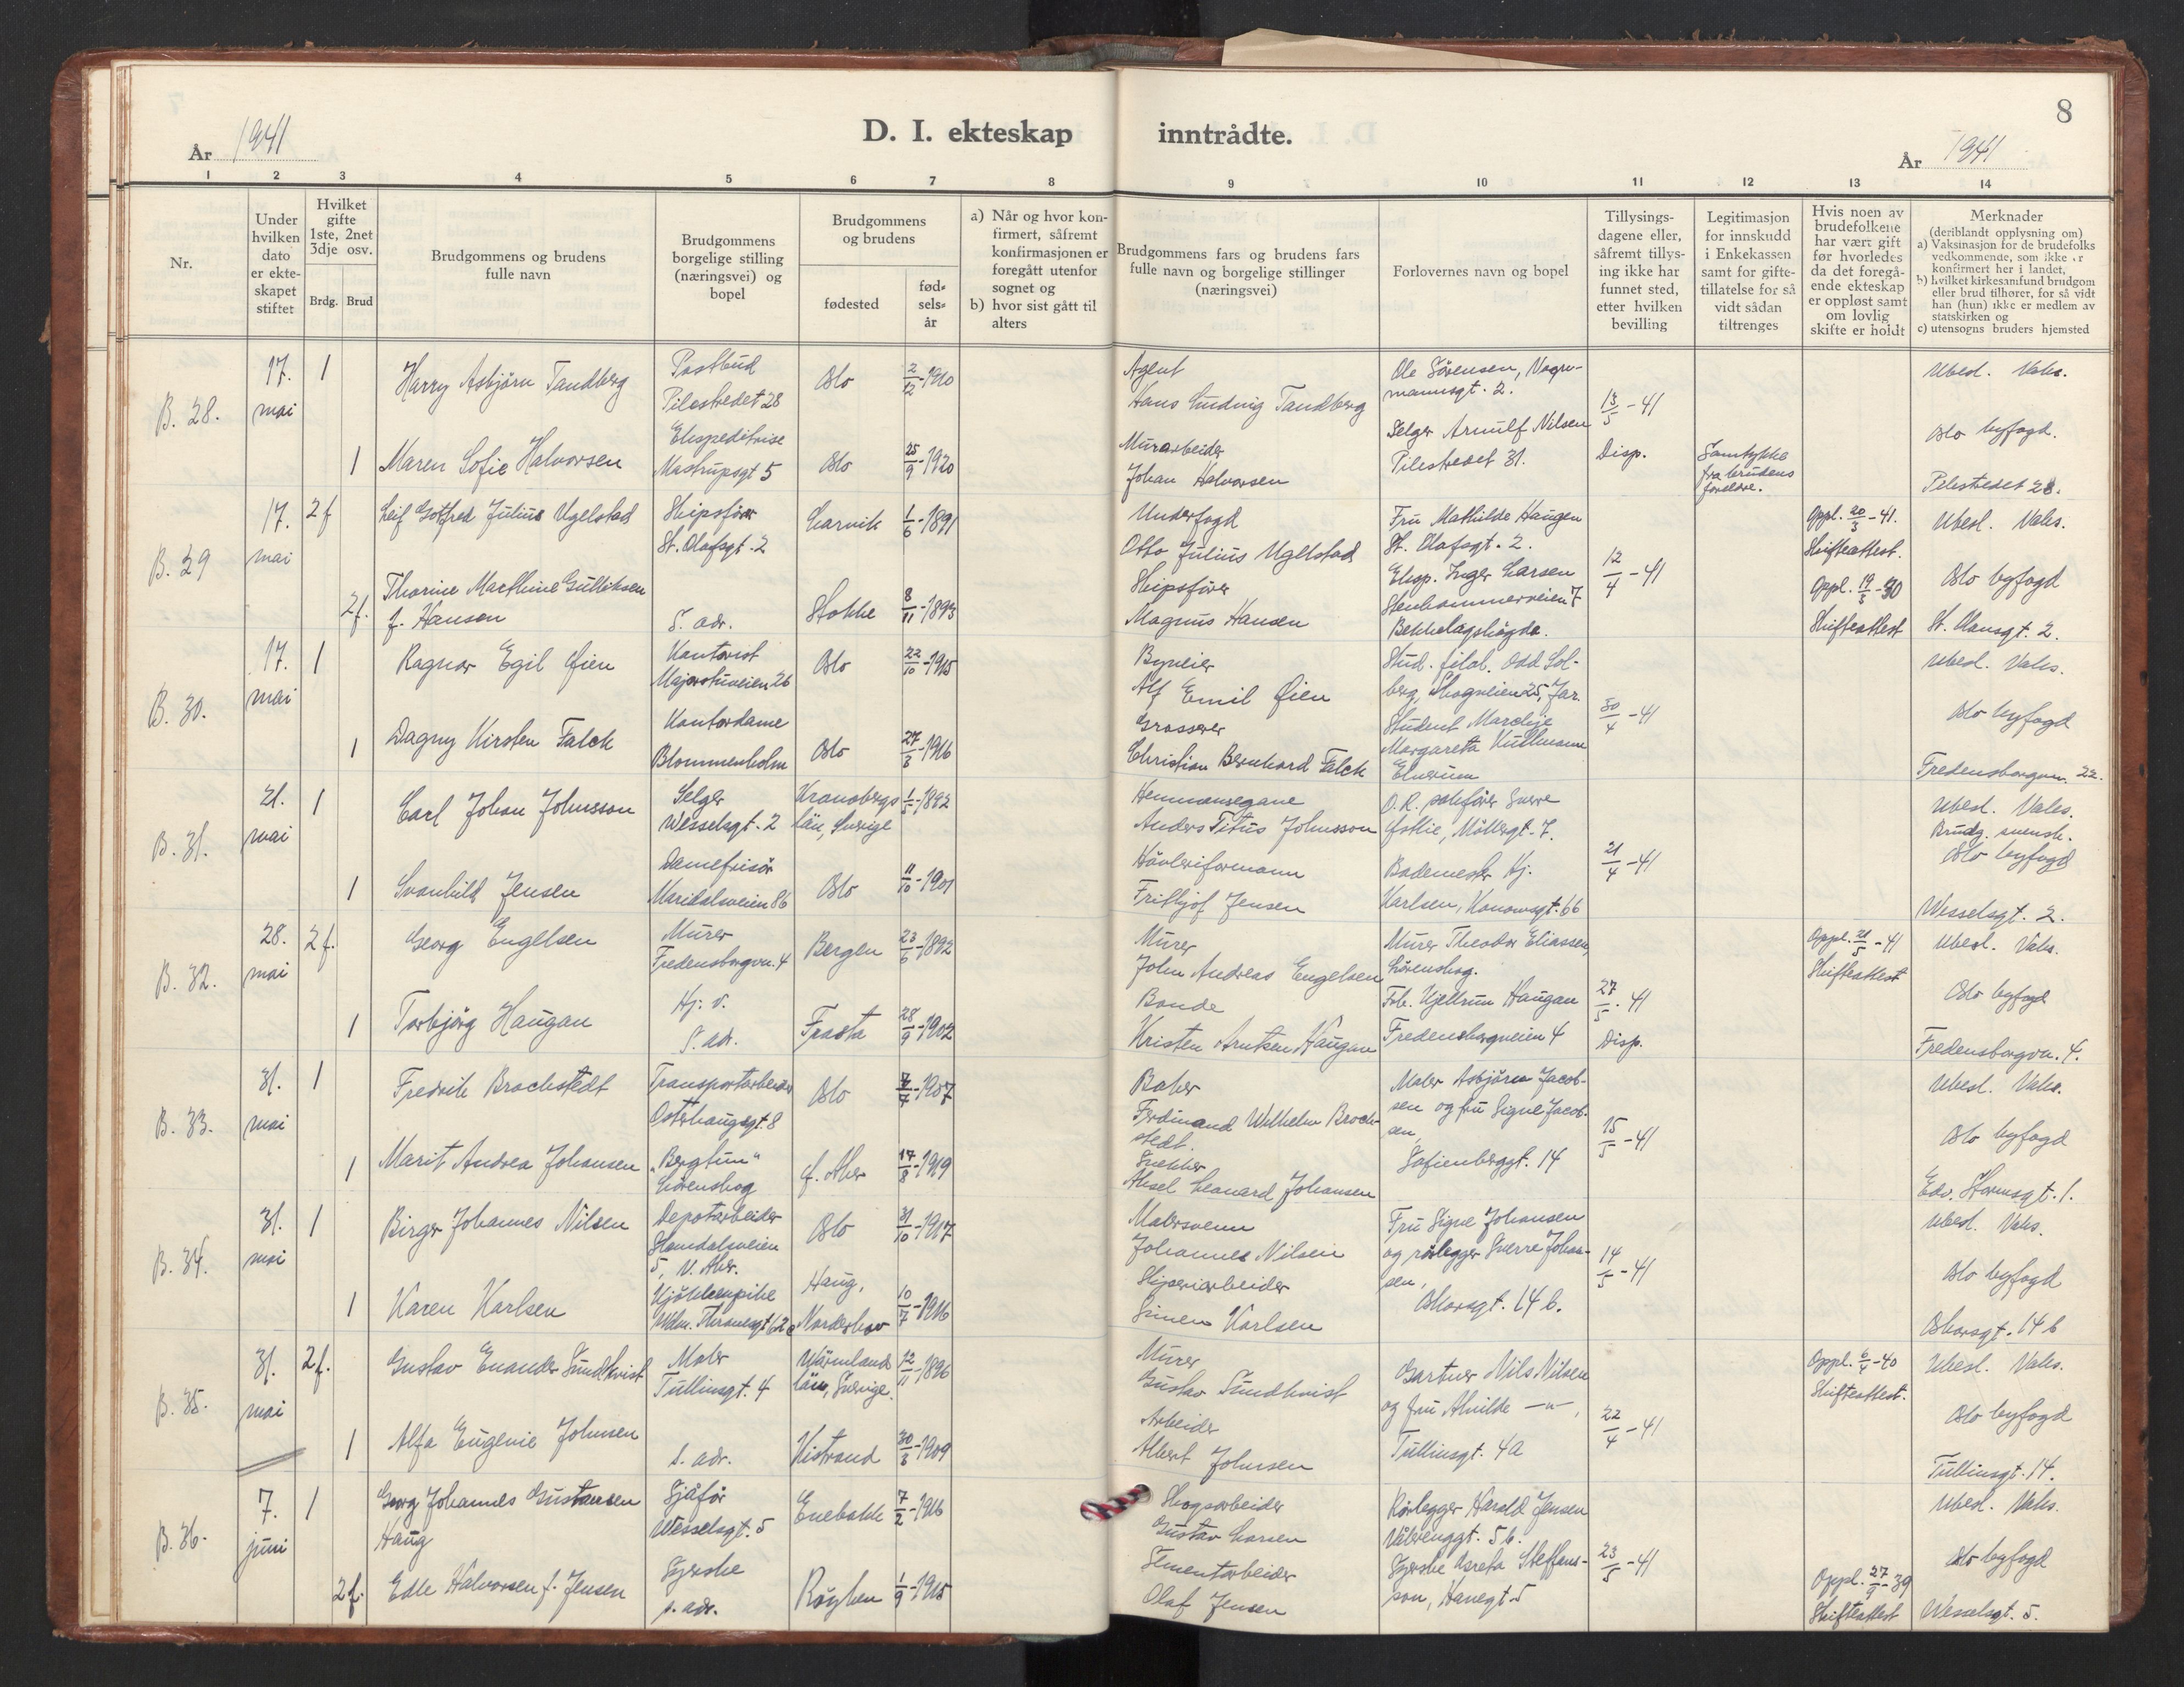 D. I. ekteskap inntrådte.
8
År 1941
År 1941
1 2 3 4 5 6 7 8 9 10 11 12 13 14
Nr.
Under hvilken dato er ekteskapet stiftet
Hvilket gifte 1ste, 2net 3dje osv.
Brdg. Brud
Brudgommens og brudens fulle navn
Brudgommens borgelige stilling (næringsvei) og bopel
Brudgommens og brudens
fødested
fødselsår
a) Når og hvor konfirmert, såfremt konfirmasjonen er foregått utenfor sognet og
b) hvor sist gått til alters
Brudgommens fars og brudens fars fulle navn og borgelige stillinger (næringsvei)
Forlovernes navn og bopel
Tillysingsdagene eller, såfremt tillysing ikke har funnet sted, etter hvilken bevilling
Legitimasjon for innskudd i Enkekassen samt for giftetillatelse for så vidt sådan tiltrenges
Hvis noen av brudefolkene har vært gift før hvorledes da det foregående ekteskap er oppløst samt om lovlig skifte er holdt
Merknader (deriblandt opplysning om)
a) Vaksinasjon for de brudefolks vedkommende, som ikke er konfirmert her i landet,
b) hvilket kirkesamfund brudgom eller brud tilhører, for så vidt han (hun) ikke er medlem av statskirken og
c) utensogns bruders hjemsted
B. 28. 17. mai
1 Harry Asbjørn Tandberg
Postbud Pilestredet 28
Oslo 2/12-1910
Agent
Hans Ludvig Tandberg
Ole Sörensen, Vogn-
mannsgt. 2.
Selger Arnulf Nilsen
Pilestredet 31.
13/5-41
Disp.
Samtykke
fra brudens
foreldre.
Ubesl. Vaks.
Oslo byfogd.
Pilestredet 28.
1 Maren Sofie Halvorsen
Ekspeditrise
Mastrupsgt 5
Oslo 25/9-1920
Murarbeider
Johan Halvorsen
B. 29 17. mai
2f Leif Gotfred Julius Ugelstad
Skipsfører
St. Olafsgt. 2
Larvik 1/6-1891
Underfogd
Otto Julius Ugelstad
Fru Mathilde Haugen
St. Olafsgt. 2.
Eksp. Inger Larsen
Stenhammerveien 7
Bekkelagshøgda.
12/4-41
Oppl. 20/3-41.
Skifteattest.
Oppl. 19/3-30
Skifteattest
Ubesl. Vaks.
Oslo byfogd
St. Olavsgt. 2.
2f. Thorine Marthine Gulliksen
f. Hansen
S. adr.
Stokke 8/11-1893
Skipsfører
Magnus Hansen
B. 30. 17. mai
1 Ragnar Egil Øien
Kontorist
Majorstuveien 26
Oslo 22/10-1915
Alf Emil Øien
Stud. filol. Odd Sol-
berg, Skogveien 25, Jar.
Student
Margareta Kullmann
30/4-41
Ubesl. Vaks.
Oslo byfogd
Fredensborgvn. 22.
1 Dagny Kirsten Falck
Kontordame
Blommenholm
Oslo 27/3-1916
Grosserer
Christian Bernhard Falck
B. 31. 21. mai
1 Carl Johan Johnsson
Selger
Wesselsgt. 2
Kronobergs
län, Sverige
1/5-1892
Hemmansegane
Anders Titus Johnsson
O.R. sakfører Sverre
Østlie, Møllergt. 7.
Bademester Hj.
Karlsen, Konowsgt. 66
21/4-41
Ubesl. Vaks.
Brudg. svensk.
Oslo byfogd
Wesselsgt. 2.
1 Svanhild Jensen
Damefrisør
Maridalsveien 86
Oslo 11/10-1901
Høvleriformann
Frithjof Jensen
B. 32. 28. mai
2f. Georg Engelsen
Murer
Fredensborgvn. 4
Bergen 23/6-1892
Murer
John Andreas Engelsen
Murer Theodor Eliassen,
Lørenskog.
Frk. Kjellrun Haugan
Fredensborgveien 4
27/5-41
Disp.
Oppl. 21/5-41
Skifteattest
Ubesl. Vaks.
Oslo byfogd
Fredensborgvn. 4.
1 Torbjørg Haugan
Hj. v.
S. adr.
Frosta 28/9-1902
Bonde
Kristen Arntsen Haugan
B. 33. 31. mai
1 Fredrik Brochstedt
Transportarbeider
Osterhausgt. 8
Oslo 7/7-1907
Baker
Ferdinand Wilhelm Broch-
stedt.
Maler Asbjørn Jacob-
sen og fru Signe Jacob-
sen,
Sofienberggt. 14
15/5-41
Ubesl. Vaks.
Oslo byfogd
Edv. Stormsgt. 1.
1 Marit Andrea Johansen
„Bergtun“
Lørenskog
Ø. Aker 17/8-1919
Snekker
Aksel Leonard Johansen
B. 34. 31. mai
1 Birger Johannes Nilsen
Depotarbeider
5, V. Aker.
Oslo 31/10-1917
Malersvenn
Johannes Nilsen
Fru Signe Johansen
og rørlegger Sverre Johan-
sen,
Oskarsgt. 14 b.
14/5-41
Ubesl. Vaks.
Oslo byfogd
Oskarsgt. 14 b
1 Karen Karlsen
Kjøkkenpike
Vidm. Thranesgt 62 c
Haug,
Norderhov
10/7-1916
Sliperiarbeider
Simen Karlsen
B. 35. 31. mai
2f. Gustav Enander Sundkvist
Maler
Tullinsgt. 4
Värmlands
län, Sverige.
12/11-1896
Murer
Gustav Sundkvist
Gartner Nils Nilsen
og fru Alvilde —"—,
Tullinsgt. 4a
22/4-41
Oppl. 6/4-40
Skifteattest.
Ubesl. Vaks.
Oslo byfogd
Tullinsgt. 14.
1 Alfa Eugenie Johnsen
s. adr.
Kistrand 30/3-1909
Arbeider
Albert Johnsen
B. 36. 7. juni
1 Georg Johannes Gustavsen
Haug
Sjåfør
Wesselsgt. 5
Enebakk 7/2-1916
Skogsarbeider
Gustav Larsen
Rørlegger Harald Jensen
Vålerenggt. 5 b.
Syerske Aareta Steffens-
son, Hanegt 5
23/5-41
Ubesl. Vaks.
Oslo byfogd
Wesselsgt. 5.
2f. Edle Halvorsen f. Jensen
Syerske
s. adr.
Røyken 1/9-1915
Sementarbeider
Olaf Jensen
Oppl. 27/9-39
Skifteattest